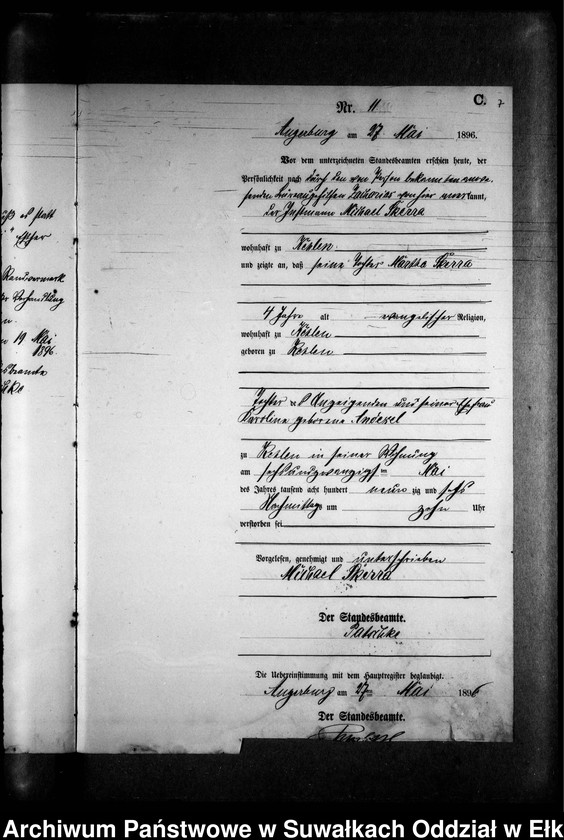 C.
7
Nr. 11
Angerburg am 27 Mai 1896.
Vor dem unterzeichneten Standesbeamten erschien heute, der
Persönlichkeit nach durch den von Person bekannten anwe-
senden Büreaugehilfen Zacharias von hier anerkannt,
der Instmann Michael Skerra
wohnhaft zu Kehlen
und zeigte an, daß seine Tochter Martha Skerra
4 Jahre alt evangelischer Religion,
wohnhaft zu Kehlen
geboren zu Kehlen
Tochter des Anzeigenden und seiner Ehefrau
Karoline geborene
zu Kehlen in seiner Wohnung
am sechsundzwanzigsten Mai
des Jahres tausend acht hundert neunzig und sechs
Nachmittags um zehn Uhr
verstorben sei
Vorgelesen, genehmigt und unterschrieben
Michael Skerra
Der Standesbeamte.
Die Uebereinstimmung mit dem Hauptregister beglaubigt.
Angerburg am 27 Mai 1896
Der Standesbeamte.
statt
Randvermerk
Verhandlung
19 Mai
1896.
Archiwum Państwowe w Suwałkach Oddział w Ełk